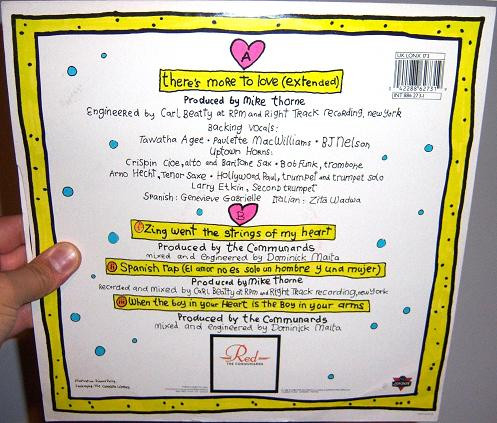 UK LONX 173
INT 886 273.1
A
there's more to love (extended)
Produced by Mike Thorne
Engineered by Carl Beatty at RPM and Right Track recording, new York
Backing vocals:
Tawatha Agee • Paulette MacWilliams • BJ Nelson
Uptown Horns:
Crispin Cioe, alto and Baritone Sax • Bob Funk, trombone
Arno Hecht, Tenor Saxe • Hollywood Paul, trumpet and trumpet solo
Larry Etkin, Second trumpet
Spanish: Genevieve Gabrielle Italian: Zita Wadwa
B
i Zing went the strings of my heart
Produced by the Communards
mixed and engineered by Dominick Maita
ii Spanish rap (El amor no es solo un hombre y una mujer)
Produced by Mike Thorne
Recorded and mixed by Carl Beatty at RPM and Right Track recording, new york
iii When the boy in your Heart is the Boy in your arms
Produced by the Communards
mixed and engineered by Dominick Maita
Red
THE COMMUNARDS